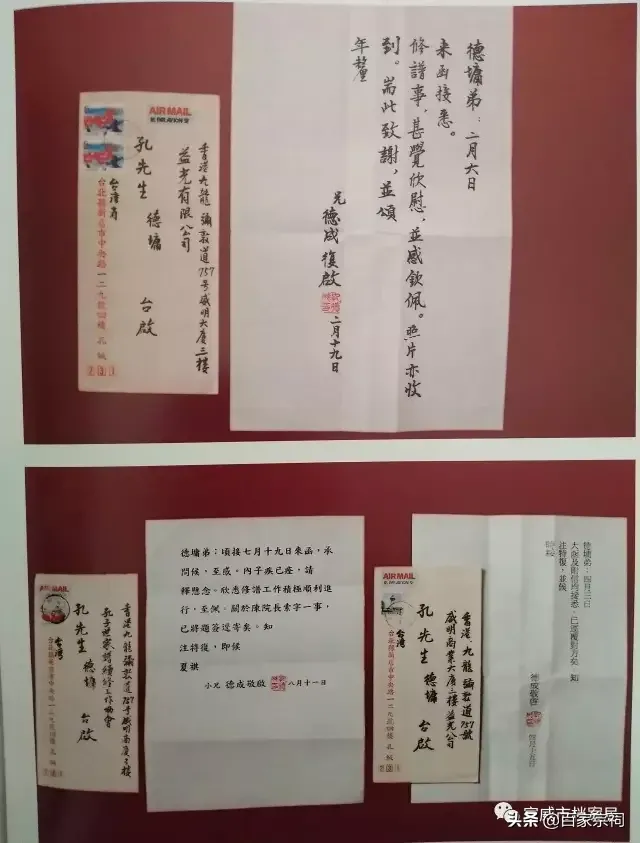 德墉弟：二月六日
来函接悉。
修譜事，甚覺欣慰，並感欽佩。照片亦收
到。耑此致謝，並頌
年釐
兄 德成復啟 二月十九日
AIR MAIL
PAR AVION
香港九龍彌敦道757号威明大廈三樓
益光有限公司
孔先生 德墉 台啟
台北縣新店市中央路一二九號四樓 孔緘
德墉弟：頃接七月十九日來函，承
問候，至感。內子疾已痊，請
釋懸念。欣悉修譜工作積極順利進
行，至佩。關於陳院長索字一事，
已將題簽逕寄矣。知
注特復，即候
夏祺
小兄 德成敬啟 八月十一日
AIR MAIL
香港九龍彌敦道757号威明商廈三樓
孔子世家譜續修工作協會
孔先生 德墉 台啟
台灣
德墉弟：四月三日
大函及附信均接悉，已逕覆對方矣。知
注特復，並候
德成敬啓
AIR MAIL
香港九龍彌敦道757號
威明商業大廈三樓益光公司
孔先生 德墉 台啟
台灣
宣威市档案局
头条@百家宗祠